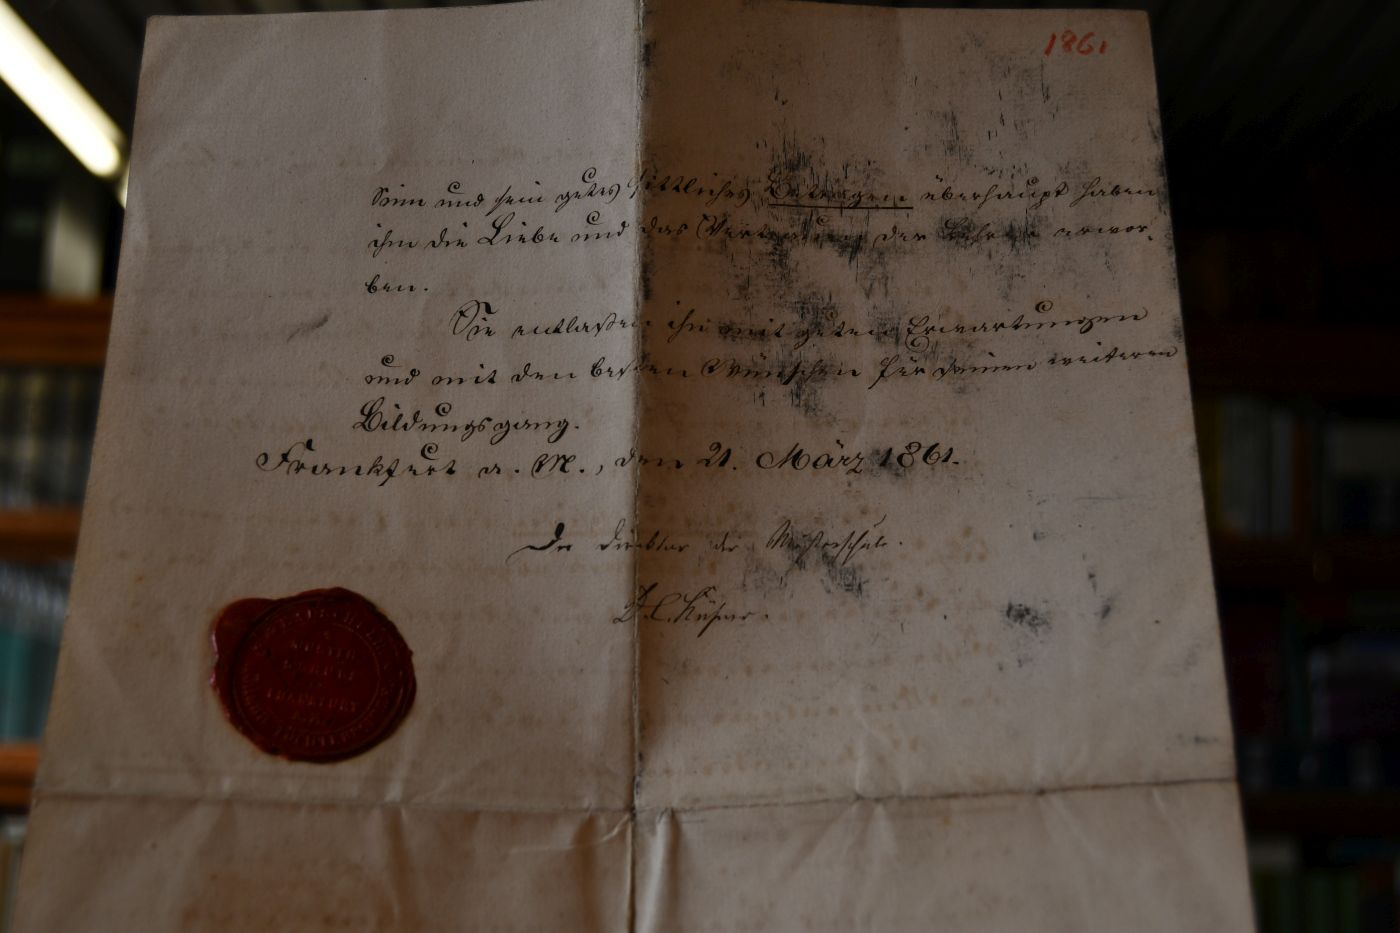 1861
Sinn und sein gutes sittliches Betragen überhaupt haben
ihm die Liebe und das Vertrauen der Lehrer erwor-
ben.
Sie entlaßen ihn mit guten Erwartungen
und mit den besten Wünschen für seinen weiteren
Bildungsgang.
Frankfurt a. M., den 21. März 1861.
Der Direktor der Musterschule.
FRANKFURT